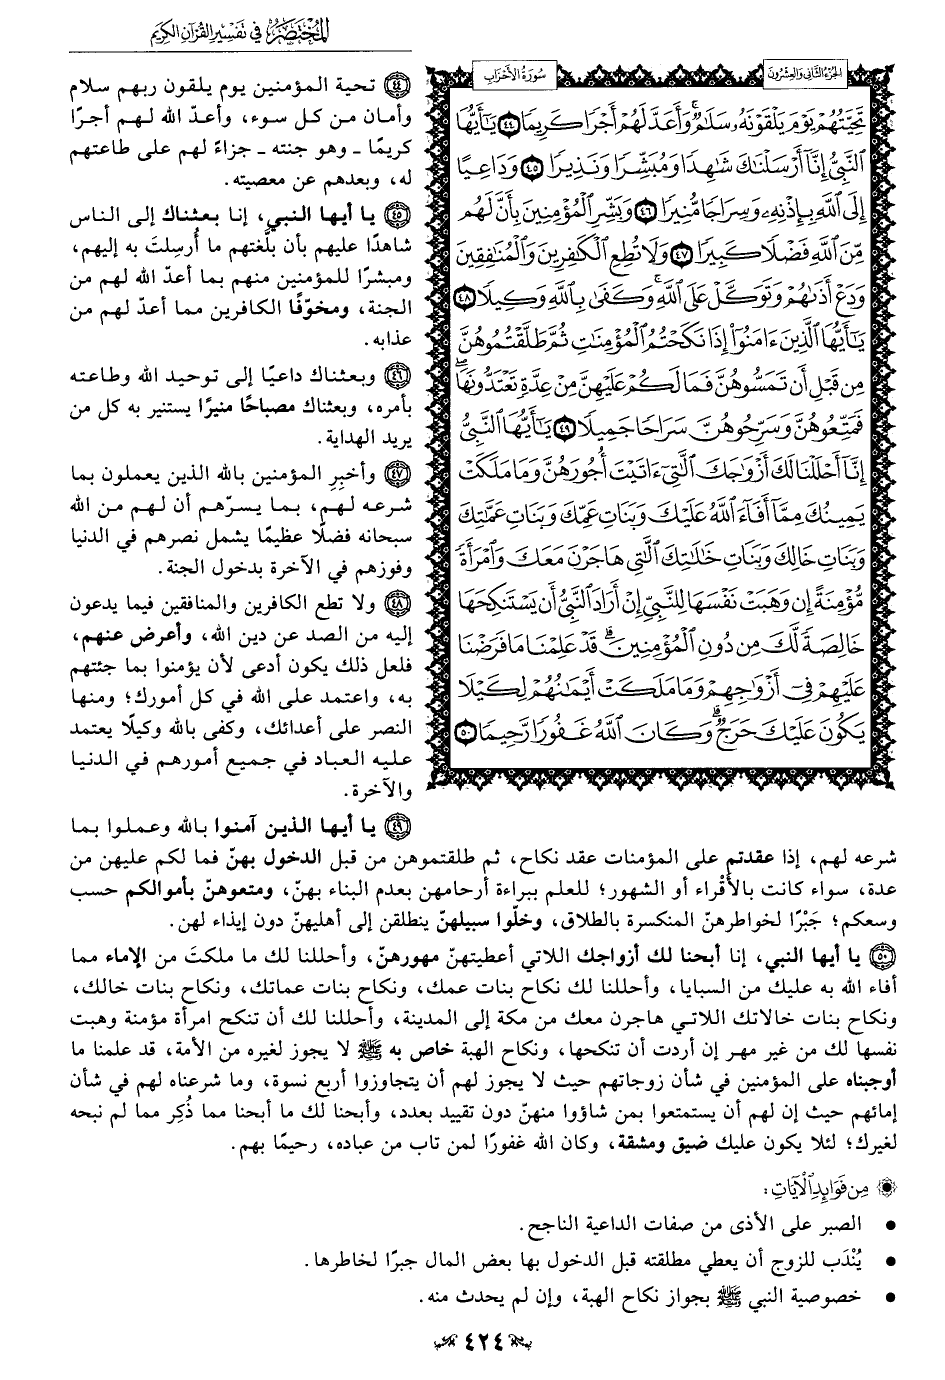 المختصر في تفسير القرآن الكريم
الجزء الثاني والعشرون
سورة الأحزاب
تَحِيَّتُهُمْ يَوْمَ يَلْقَوْنَهُۥ سَلَٰمٌۚ وَأَعَدَّ لَهُمْ أَجْرًا كَرِيمًا ٤٤ يَٰٓأَيُّهَا
ٱلنَّبِيُّ إِنَّآ أَرْسَلْنَٰكَ شَٰهِدًا وَمُبَشِّرًا وَنَذِيرًا ٤٥ وَدَاعِيًا
إِلَى ٱللَّهِ بِإِذْنِهِۦ وَسِرَاجًا مُّنِيرًا ٤٦ وَبَشِّرِ ٱلْمُؤْمِنِينَ بِأَنَّ لَهُم
مِّنَ ٱللَّهِ فَضْلًا كَبِيرًا ٤٧ وَلَا تُطِعِ ٱلْكَٰفِرِينَ وَٱلْمُنَٰفِقِينَ
وَدَعْ أَذَىٰهُمْ وَتَوَكَّلْ عَلَى ٱللَّهِۚ وَكَفَىٰ بِٱللَّهِ وَكِيلًا ٤٨
يَٰٓأَيُّهَا ٱلَّذِينَ ءَامَنُوٓا۟ إِذَا نَكَحْتُمُ ٱلْمُؤْمِنَٰتِ ثُمَّ طَلَّقْتُمُوهُنَّ
مِن قَبْلِ أَن تَمَسُّوهُنَّ فَمَا لَكُمْ عَلَيْهِنَّ مِنْ عِدَّةٍ تَعْتَدُّونَهَاۖ
فَمَتِّعُوهُنَّ وَسَرِّحُوهُنَّ سَرَاحًا جَمِيلًا ٤٩ يَٰٓأَيُّهَا ٱلنَّبِيُّ
إِنَّآ أَحْلَلْنَا لَكَ أَزْوَٰجَكَ ٱلَّٰتِيٓ ءَاتَيْتَ أُجُورَهُنَّ وَمَا مَلَكَتْ
يَمِينُكَ مِمَّآ أَفَآءَ ٱللَّهُ عَلَيْكَ وَبَنَاتِ عَمِّكَ وَبَنَاتِ عَمَّٰتِكَ
وَبَنَاتِ خَالِكَ وَبَنَاتِ خَٰلَٰتِكَ ٱلَّٰتِي هَاجَرْنَ مَعَكَ وَٱمْرَأَةً
مُّؤْمِنَةً إِن وَهَبَتْ نَفْسَهَا لِلنَّبِيِّ إِنْ أَرَادَ ٱلنَّبِيُّ أَن يَسْتَنكِحَهَا
خَالِصَةً لَّكَ مِن دُونِ ٱلْمُؤْمِنِينَۗ قَدْ عَلِمْنَا مَا فَرَضْنَا
عَلَيْهِمْ فِيٓ أَزْوَٰجِهِمْ وَمَا مَلَكَتْ أَيْمَٰنُهُمْ لِكَيْلَا
يَكُونَ عَلَيْكَ حَرَجٌۗ وَكَانَ ٱللَّهُ غَفُورًا رَّحِيمًا ٥٠
٤٤ تحية المؤمنين يوم يلقون ربهم سلام
وأمان من كل سوء، وأعدّ الله لهم أجرًا
كريمًا ـ وهو جنته ـ جزاءً لهم على طاعتهم
له، وبعدهم عن معصيته.
٤٥ يا أيها النبي، إنا بعثناك إلى الناس
شاهدًا عليهم بأن بلَّغتهم ما أُرسِلتَ به إليهم،
ومبشرًا للمؤمنين منهم بما أعدّ الله لهم من
الجنة، ومخوّفًا الكافرين مما أعدّ لهم من
عذابه.
٤٦ وبعثناك داعيًا إلى توحيد الله وطاعته
بأمره، وبعثناك مصباحًا منيرًا يستنير به كل من
يريد الهداية.
٤٧ وأخبِرِ المؤمنين بالله الذين يعملون بما
شرعه لهم، بما يسرّهم أن لهم من الله
سبحانه فضلًا عظيمًا يشمل نصرهم في الدنيا
وفوزهم في الآخرة بدخول الجنة.
٤٨ ولا تطع الكافرين والمنافقين فيما يدعون
إليه من الصد عن دين الله، وأعرض عنهم،
فلعل ذلك يكون أدعى لأن يؤمنوا بما جئتهم
به، واعتمد على الله في كل أمورك؛ ومنها
النصر على أعدائك، وكفى بالله وكيلًا يعتمد
عليه العباد في جميع أمورهم في الدنيا
والآخرة.
٤٩ يا أيها الذين آمنوا بالله وعملوا بما
شرعه لهم، إذا عقدتم على المؤمنات عقد نكاح، ثم طلقتموهن من قبل الدخول بهنّ فما لكم عليهن من
عدة، سواء كانت بالأقْراء أو الشهور؛ للعلم ببراءة أرحامهن بعدم البناء بهنّ، ومتعوهنّ بأموالكم حسب
وسعكم؛ جَبْرًا لخواطرهنّ المنكسرة بالطلاق، وخلّوا سبيلهنّ ينطلقن إلى أهليهنّ دون إيذاء لهن.
٥٠ يا أيها النبي، إنا أبحنا لك أزواجك اللاتي أعطيتهنّ مهورهنّ، وأحللنا لك ما ملكتَ من الإماء مما
أفاء الله به عليك من السبايا، وأحللنا لك نكاح بنات عمك، ونكاح بنات عماتك، ونكاح بنات خالك،
ونكاح بنات خالاتك اللاتي هاجرن معك من مكة إلى المدينة، وأحللنا لك أن تنكح امرأة مؤمنة وهبت
نفسها لك من غير مهر إن أردت أن تنكحها، ونكاح الهبة خاص به ﷺ لا يجوز لغيره من الأمة، قد علمنا ما
أوجبناه على المؤمنين في شأن زوجاتهم حيث لا يجوز لهم أن يتجاوزوا أربع نسوة، وما شرعناه لهم في شأن
إمائهم حيث إن لهم أن يستمتعوا بمن شاؤوا منهنّ دون تقييد بعدد، وأبحنا لك ما أبحنا مما ذُكِر مما لم نبحه
لغيرك؛ لئلا يكون عليك ضيق ومشقة، وكان الله غفورًا لمن تاب من عباده، رحيمًا بهم.
من فوائد الآيات:
• الصبر على الأذى من صفات الداعية الناجح.
• يُنْدَب للزوج أن يعطي مطلقته قبل الدخول بها بعض المال جبرًا لخاطرها.
• خصوصية النبي ﷺ بجواز نكاح الهبة، وإن لم يحدث منه.
٤٢٤